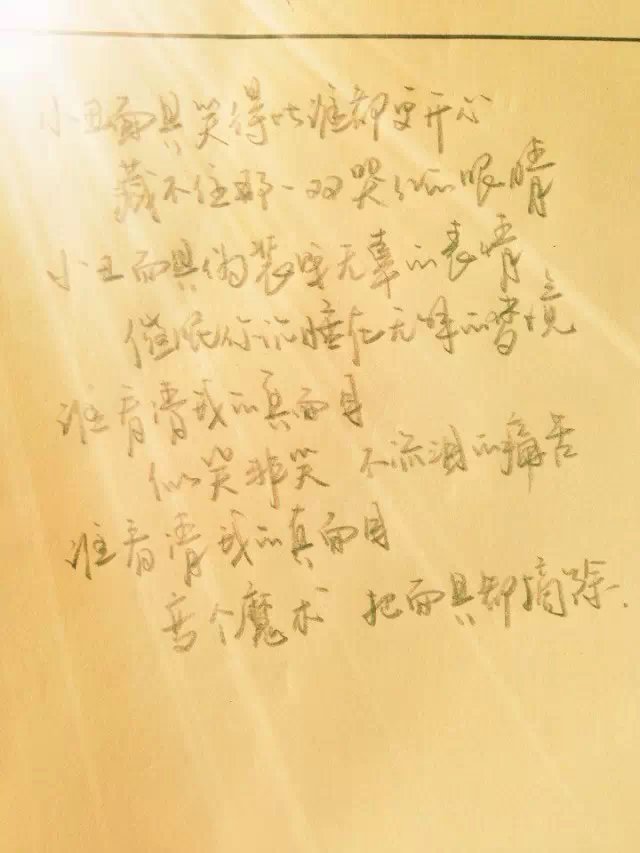 小丑面具笑得比谁都更开心
藏不住那一双哭红的眼睛
小丑面具伪装成无辜的表情
催眠你沉睡在无解的梦境
谁看清我的真面目
似笑非笑 不流泪的痛苦
谁看清我的真面目
变个魔术 把面具都摘除.